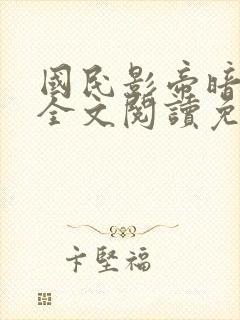 國民影帝暗
全文閱讀免
卞堅福